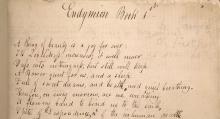 Endymion Book 1st
A thing of beauty is a joy for ever
Its Loveliness increases; it will never
Pass into nothingness, but still will keep
A Bower quiet for us, and a sleep
Full of sweet dreams, and health, and quiet breathing.
Therefore, on every morrow, are we wreathing
A flowery band to bind us to the earth,
Spite of despondence, of the inhuman dearth